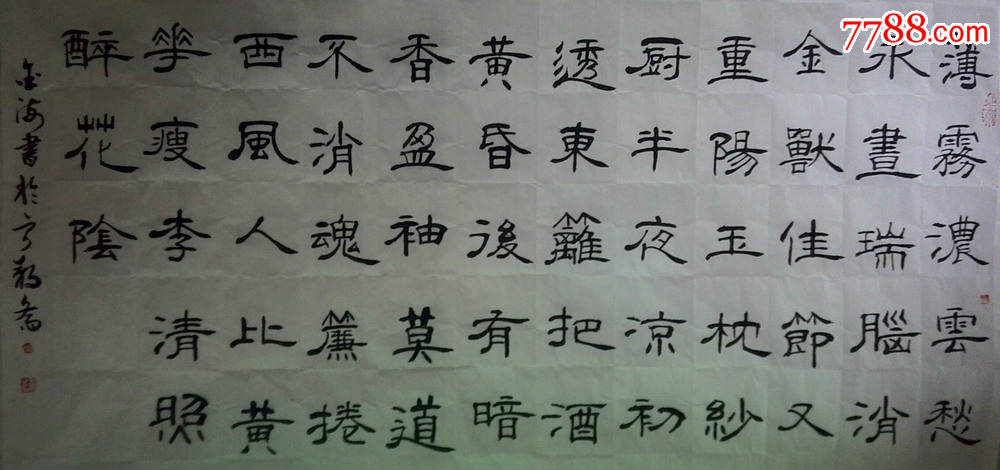 薄霧濃雲愁
永晝瑞腦消
金獸佳節又
重陽玉枕紗
厨半夜涼初
透東籬把酒
黃昏後有暗
香盈袖莫道
不消魂簾捲
西風人比黃
華瘦李清照
醉花陰
海書於
7788.com